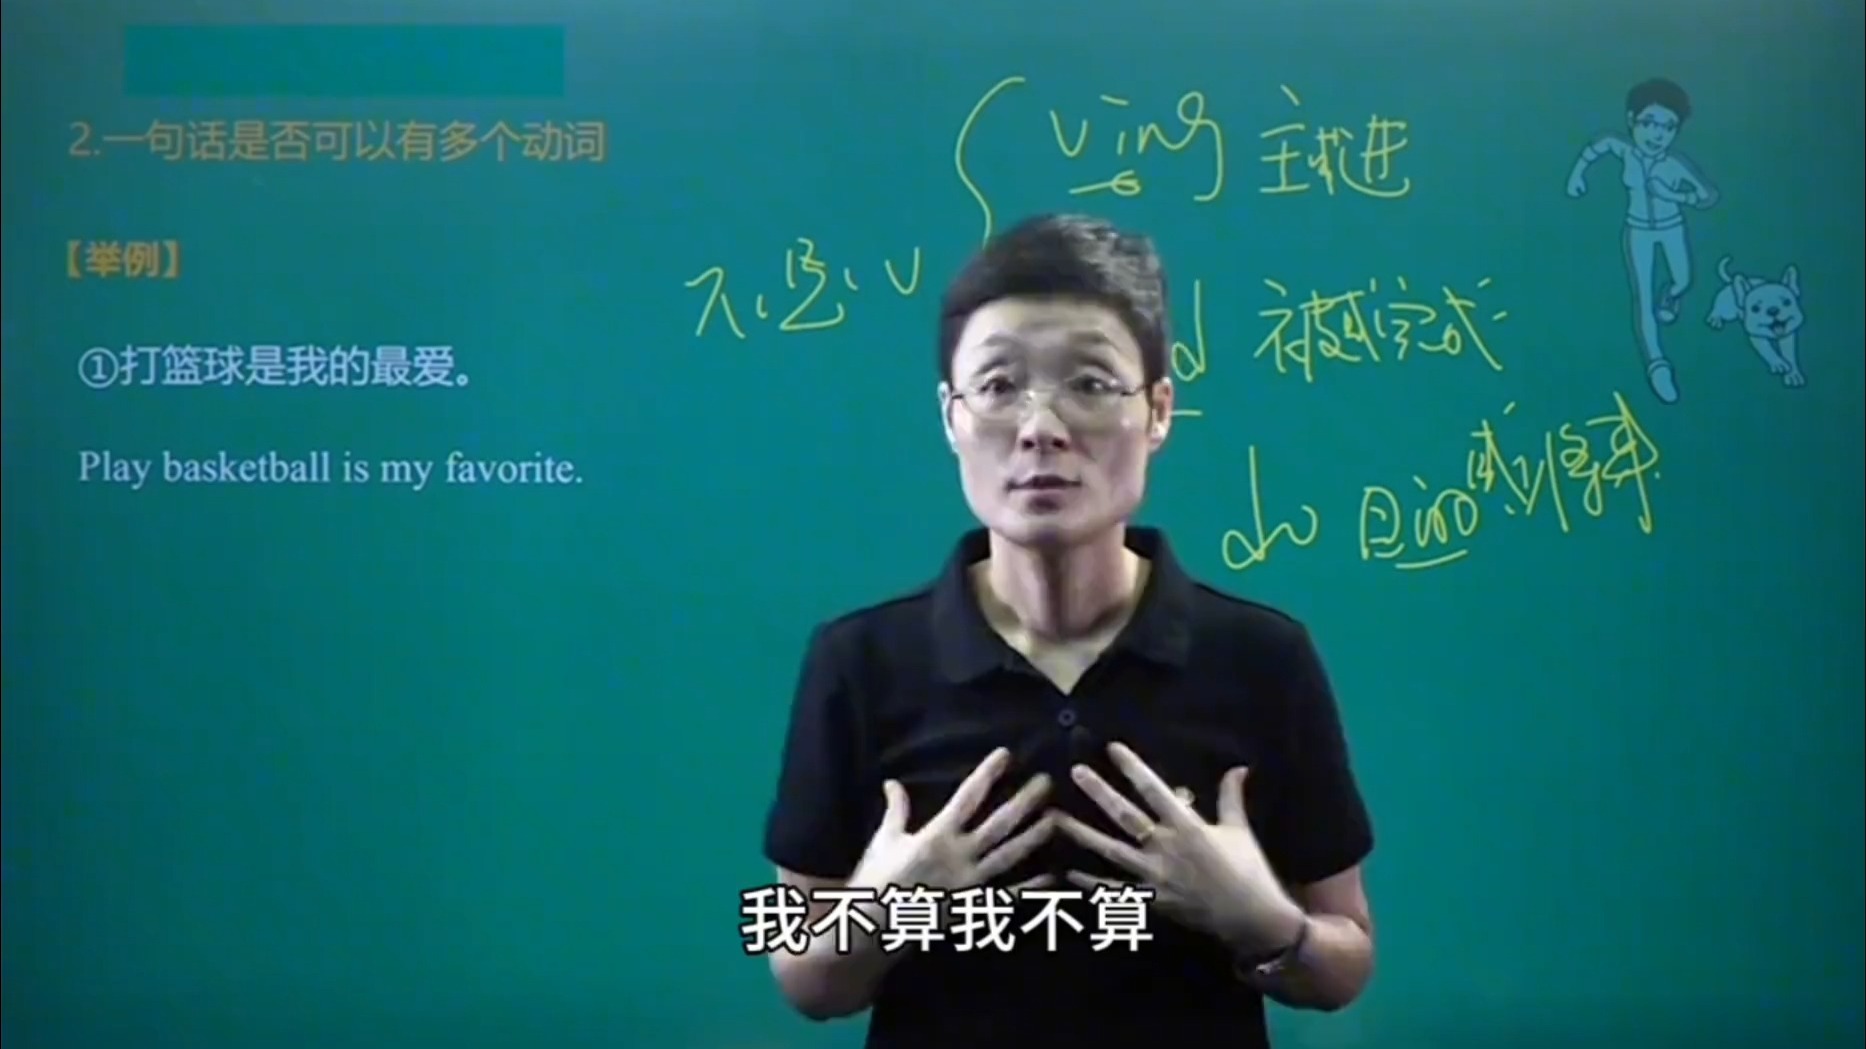 2.一句话是否可以有多个动词
【举例】
①打篮球是我的最爱。
Play basketball is my favorite.
不是 v
ving 主或进
d 被或完成
do 目的或将来
我不算我不算